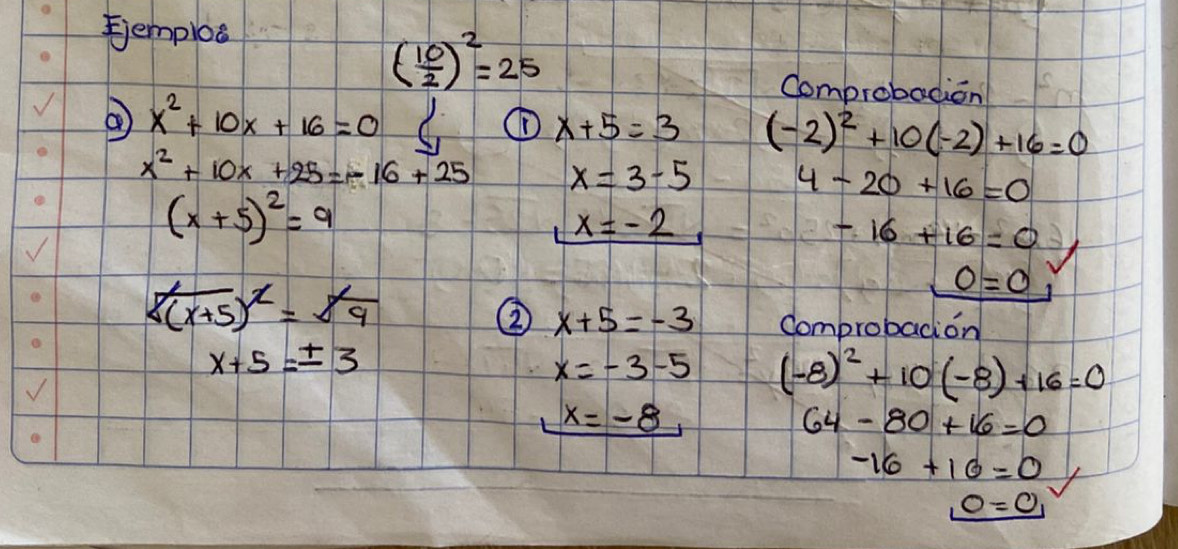 Ejemplos
(10/2)² = 25
a) x² + 10x + 16 = 0
x² + 10x + 25 = -16 + 25
(x + 5)² = 9
√(x+5)² = √9
x+5 = ± 3
① x+5 = 3
x = 3-5
x = -2
Comprobación
(-2)² + 10(-2) + 16 = 0
4 - 20 + 16 = 0
- 16 + 16 = 0
0 = 0 ✓
② x+5 = -3
x = -3-5
x = -8
Comprobación
(-8)² + 10(-8) + 16 = 0
64 - 80 + 16 = 0
-16 + 16 = 0
0 = 0 ✓